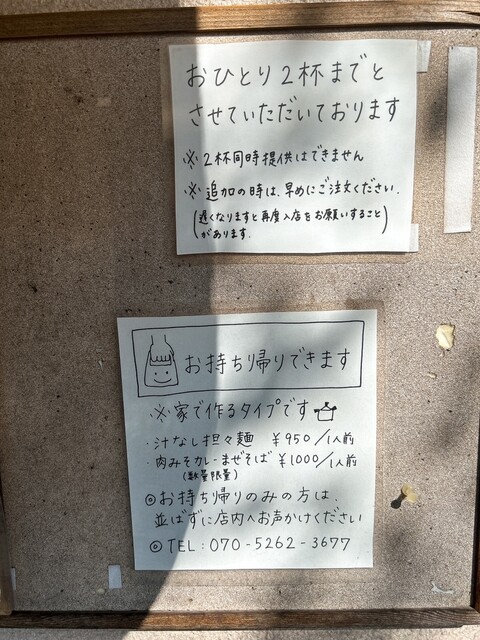 おひとり2杯までと
させていただいております
※2杯同時提供はできません
※追加の時は、早めにご注文ください。
(遅くなりますと再度入店をお願いすること
があります。)
お持ち帰りできます
※家で作るタイプです
・汁なし担々麺 ¥950/1人前
・肉みそカレーまぜそば ¥1000/1人前
(数量限量)
◎お持ち帰りのみの方は、
並ばずに店内へお声かけください
◎TEL:070-5262-3677